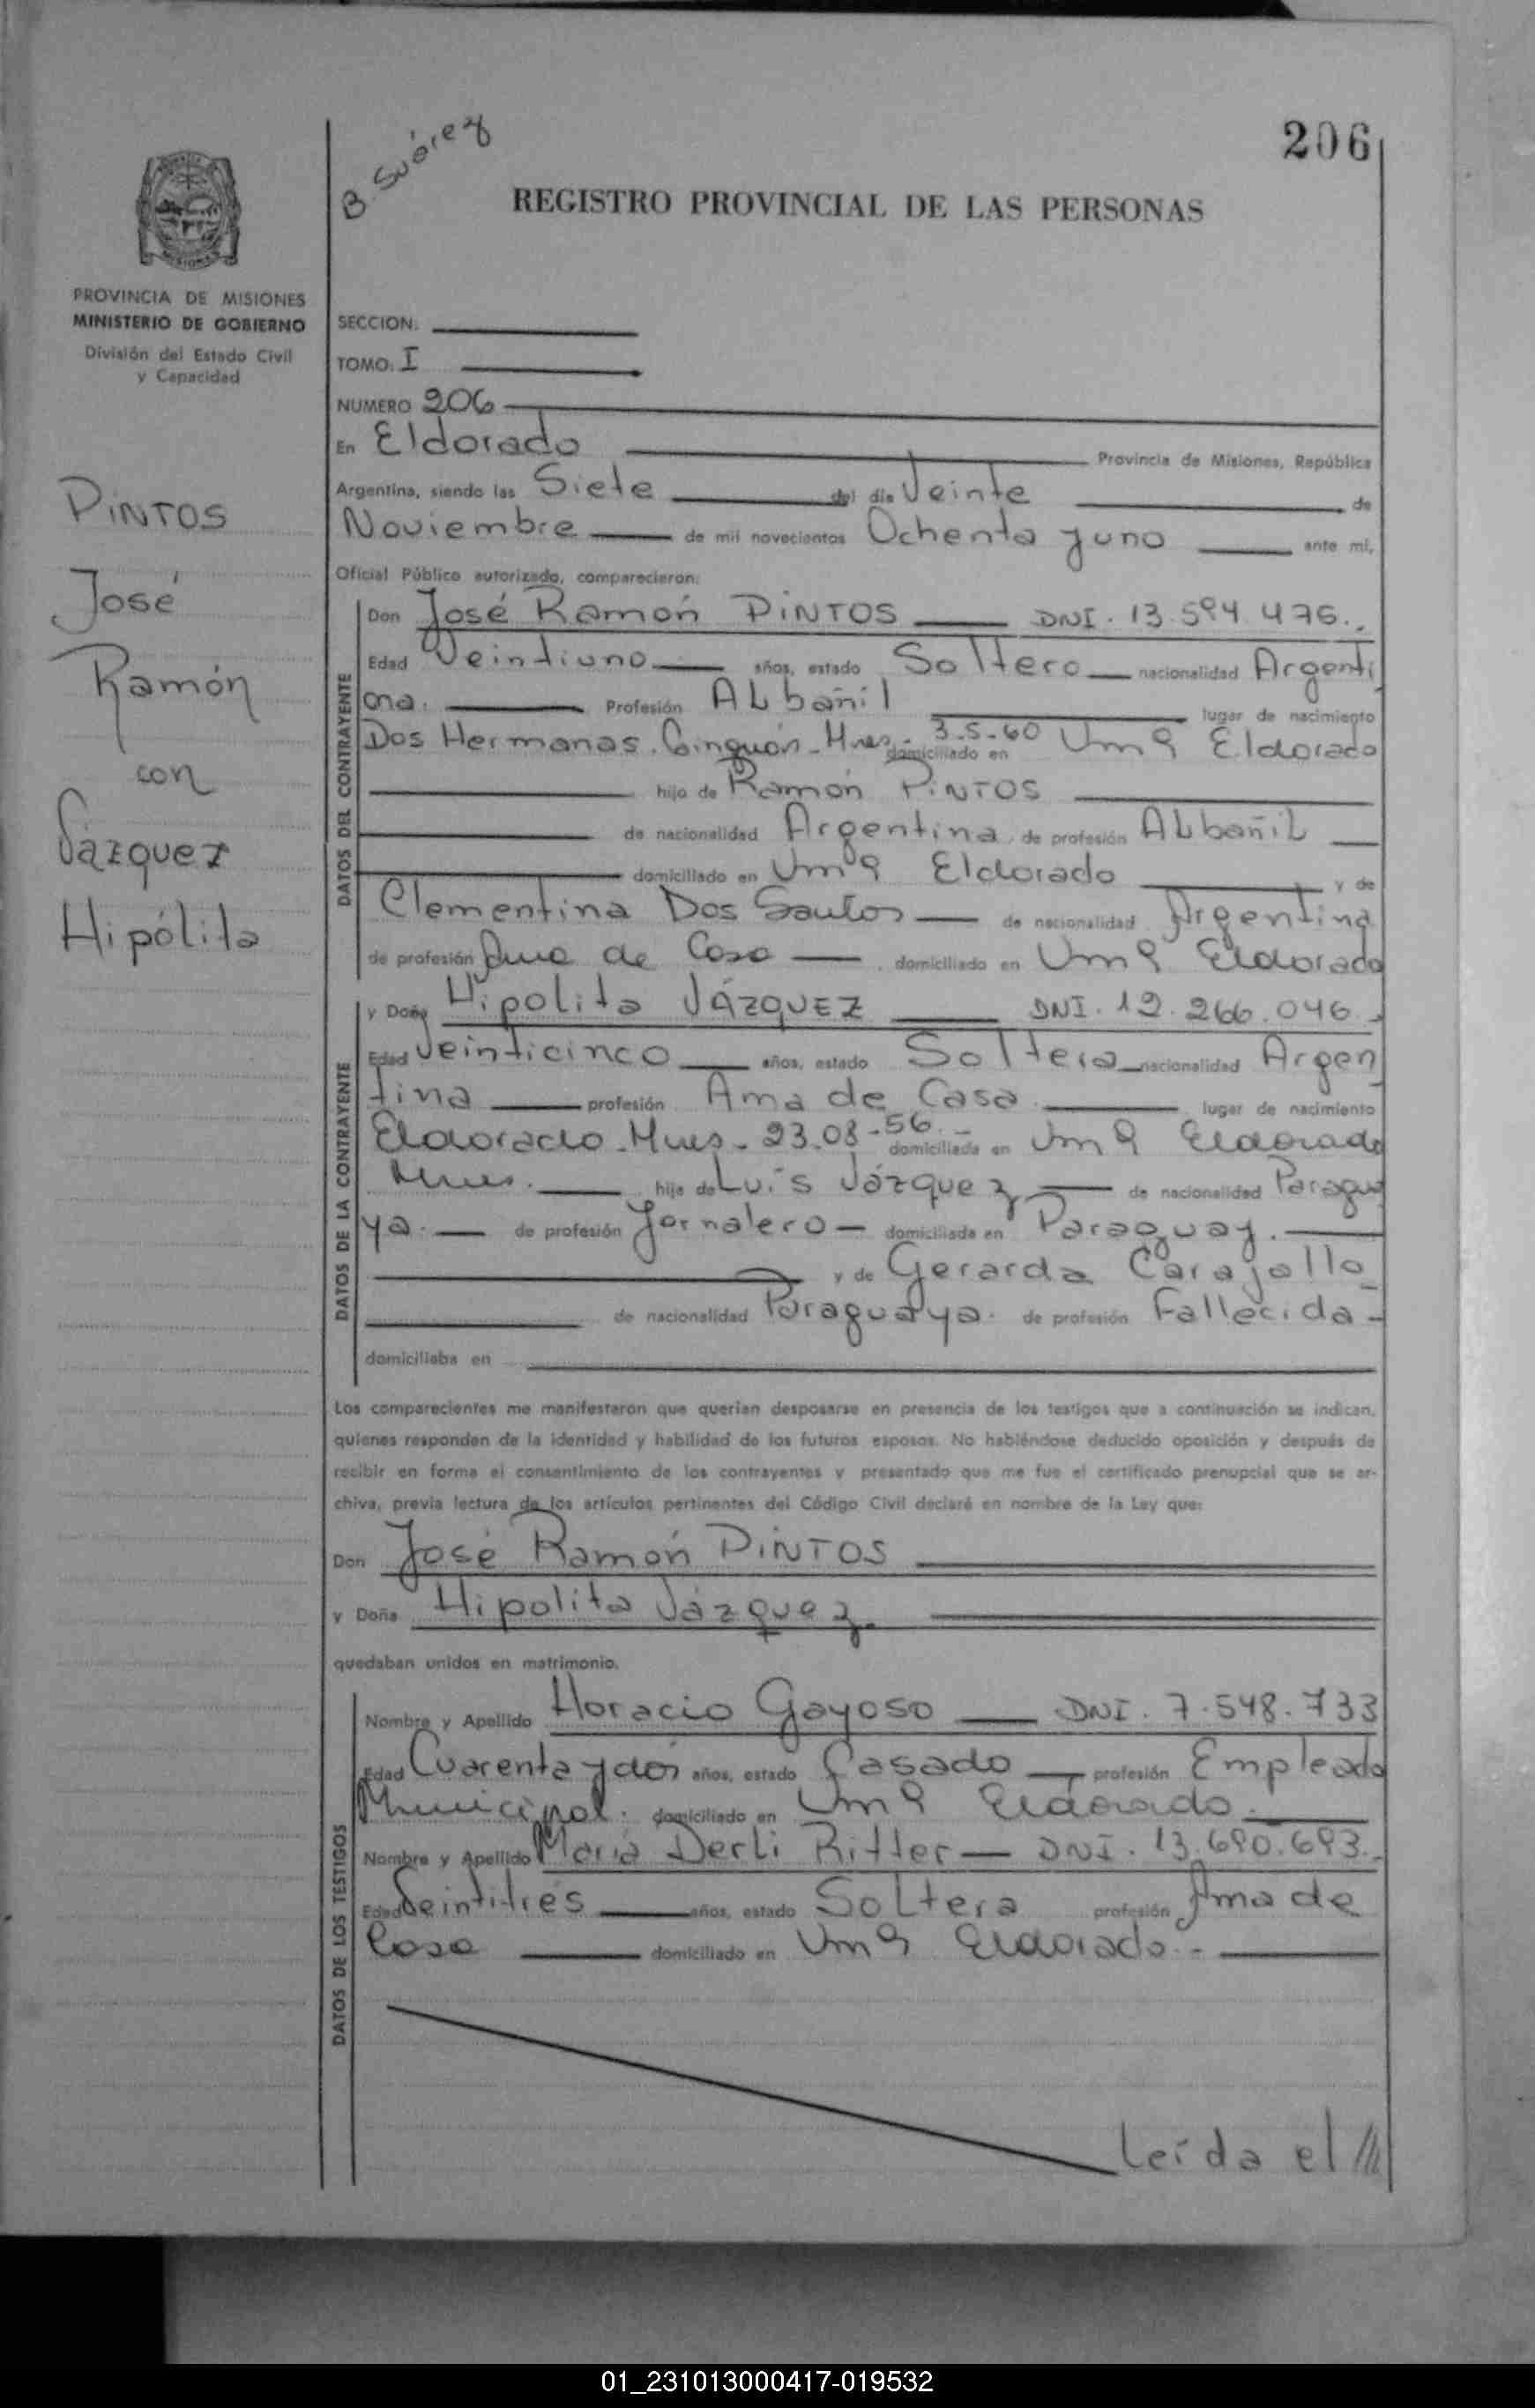 206
B. Suárez
REGISTRO PROVINCIAL DE LAS PERSONAS
PROVINCIA DE MISIONES
MINISTERIO DE GOBIERNO
División del Estado Civil
y Capacidad
PINTOS
José
Ramón
con
Vázquez
Hipólita
SECCION:
TOMO: I
NUMERO 206
En Eldorado Provincia de Misiones, República
Argentina, siendo las Siete del día Veinte de
Noviembre de mil novecientos Ochenta y uno ante mí,
Oficial Público autorizado, comparecieron:
DATOS DEL CONTRAYENTE
Don José Ramón PINTOS DNI. 13.594.476.
Edad Veintiuno años, estado Soltero nacionalidad Argenti
na. Profesión Albañil lugar de nacimiento
Dos Hermanas. - Mnes. 3-5-60 domiciliado en Eldorado
hijo de Ramón PINTOS
de nacionalidad Argentina de profesión Albañil
domiciliado en Eldorado y de
Clementina Dos Santos de nacionalidad Argentina
de profesión Ama de Casa domiciliado en Eldorado
DATOS DE LA CONTRAYENTE
y Doña Hipolita VÁZQUEZ DNI. 12.266.046.
Edad Veinticinco años, estado Soltera nacionalidad Argen
tina profesión Ama de Casa lugar de nacimiento
Eldorado - Mnes - 23-08-56 domiciliada en Eldorado
Mnes. hija de Luis Vázquez de nacionalidad Paragua
ya. de profesión Jornalero domiciliada en Paraguay.
y de Gerarda
de nacionalidad Paraguaya. de profesión Fallecida
domiciliaba en
Los comparecientes me manifestaron que querían desposarse en presencia de los testigos que a continuación se indican,
quienes responden de la identidad y habilidad de los futuros esposos. No habiéndose deducido oposición y después de
recibir en forma el consentimiento de los contrayentes y presentado que me fue el certificado prenupcial que se ar-
chiva, previa lectura de los artículos pertinentes del Código Civil declaré en nombre de la Ley que:
Don José Ramón PINTOS
y Doña Hipolita Vázquez.
quedaban unidos en matrimonio.
DATOS DE LOS TESTIGOS
Nombre y Apellido Horacio Gayoso DNI. 7.548.733
Edad Cuarenta y dos años, estado Casado profesión Empleado
Municipal. domiciliado en Eldorado.
Nombre y Apellido María Derli Ritter DNI. 13.690.693.
Edad Veintitrés años, estado Soltera profesión Ama de
Casa domiciliado en Eldorado.
Leída el ///
01_231013000417-019532